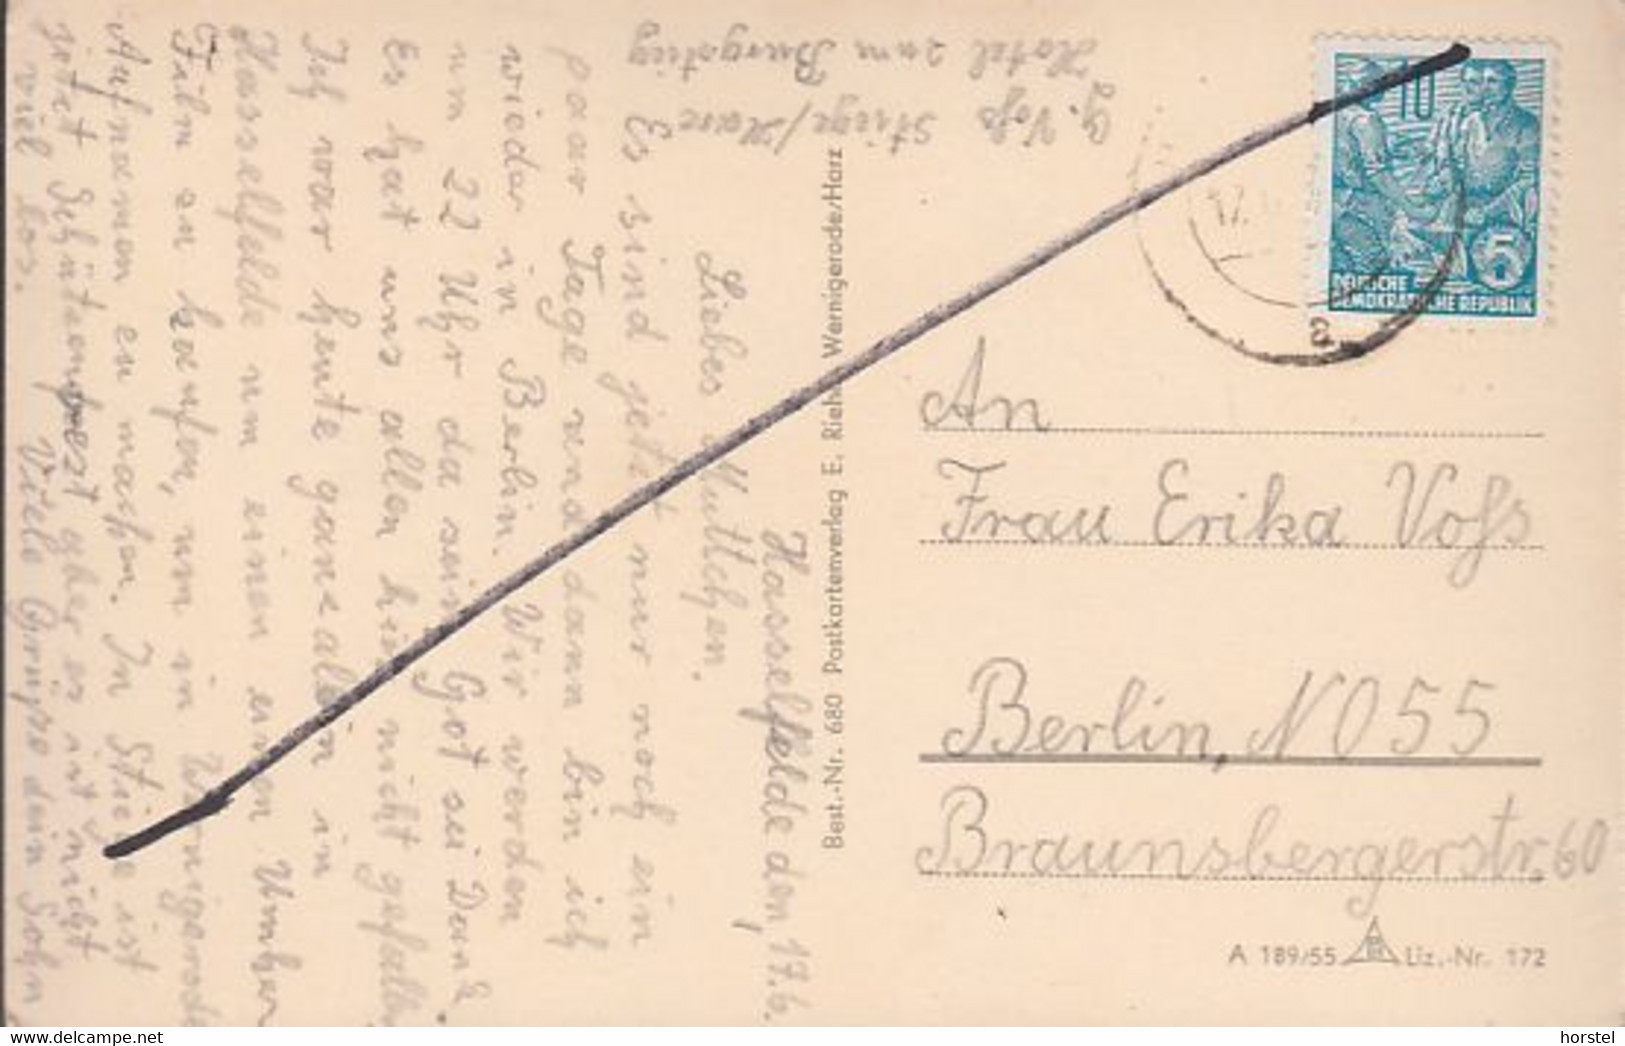 Hasselfelde den, 17.6.
Liebes Muttchen.
Es sind jetzt nur noch ein
paar Tage und dann bin ich
wieder in Berlin. Wir werden
um 22 Uhr da sein. Got sei Dank
Es hat uns allen hier nicht gefallen
Ich war heute ganz allein in
Hasselfelde um einen
Film zu kaufen, um in Wernigerode
Aufnamen zu machen. In Stiege ist
jetzt Schützenfest aber es ist nicht
viel los. Viele Grüße dein Sohn
G. Voß Stiege/Harz
Hotel zum Burgstieg
Best.-Nr. 680 Postkartenverlag E. Riehn Wernigerode/Harz
10
5
DEUTSCHE
DEMOKRATISCHE REPUBLIK
17.
a
An
Frau Erika Voß
Berlin, NO55
Braunsbergerstr. 60
A 189/55 Liz.-Nr. 172
www.delcampe.net
horstel